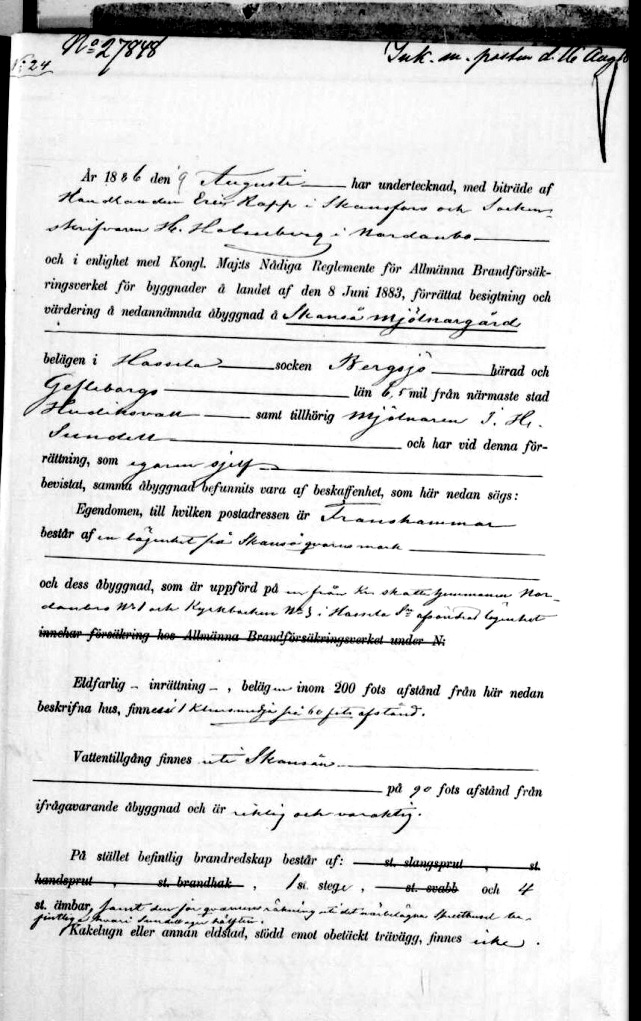 No 27848
No 24
Ink. m. posten d. 16 Aug
År 1886 den 9 Augusti har undertecknad, med biträde af
Handlanden Erik Kapp i Skansfors och Socken-
skrifvaren H. Holmberg i Nordanbro
och i enlighet med Kongl. Maj:ts Nådiga Reglemente för Allmänna Brandförsäk-
ringsverket för byggnader å landet af den 8 Juni 1883, förrättat besigtning och
värdering å nedannämnda åbyggnad å Skanså Mjölnargård
belägen i Hassela socken Bergsjö härad och
Gefleborgs län 6,5 mil från närmaste stad
Hudiksvall samt tillhörig Mjölnaren J. H.
Sundell och har vid denna för-
rättning, som egaren sjelf
bevistat, samma åbyggnad befunnits vara af beskaffenhet, som här nedan sägs:
Egendomen, till hvilken postadressen är Franshammar
består af en lägenhet på Skanså qvarns mark
och dess åbyggnad, som är uppförd på en från Kr. skattehemmanen Nor-
danbro No 1 och Kyrkbacken No 3 i Hassela Sn afsöndrad lägenhet
innehar försäkring hos Allmänna Brandförsäkringsverket under N:
Eldfarlig inrättning, belägen inom 200 fots afstånd från här nedan
beskrifna hus, finnes 1 Klensmedja på 60 fots afstånd.
Vattentillgång finnes uti Skansån
på 90 fots afstånd från
ifrågavarande åbyggnad och är riklig och varaktig.
På stället befintlig brandredskap består af: st. slangsprut, st.
handsprut, st. brandhak, 1 st. stege, st. svabb och 4
st. ämbar, samt den för qvarnens räkning uti det närbelägna Spruthuset be-
fintliga hvari Sundell eger hälften.
Kakelugn eller annan eldstad, stödd emot obetäckt trävägg, finnes icke.